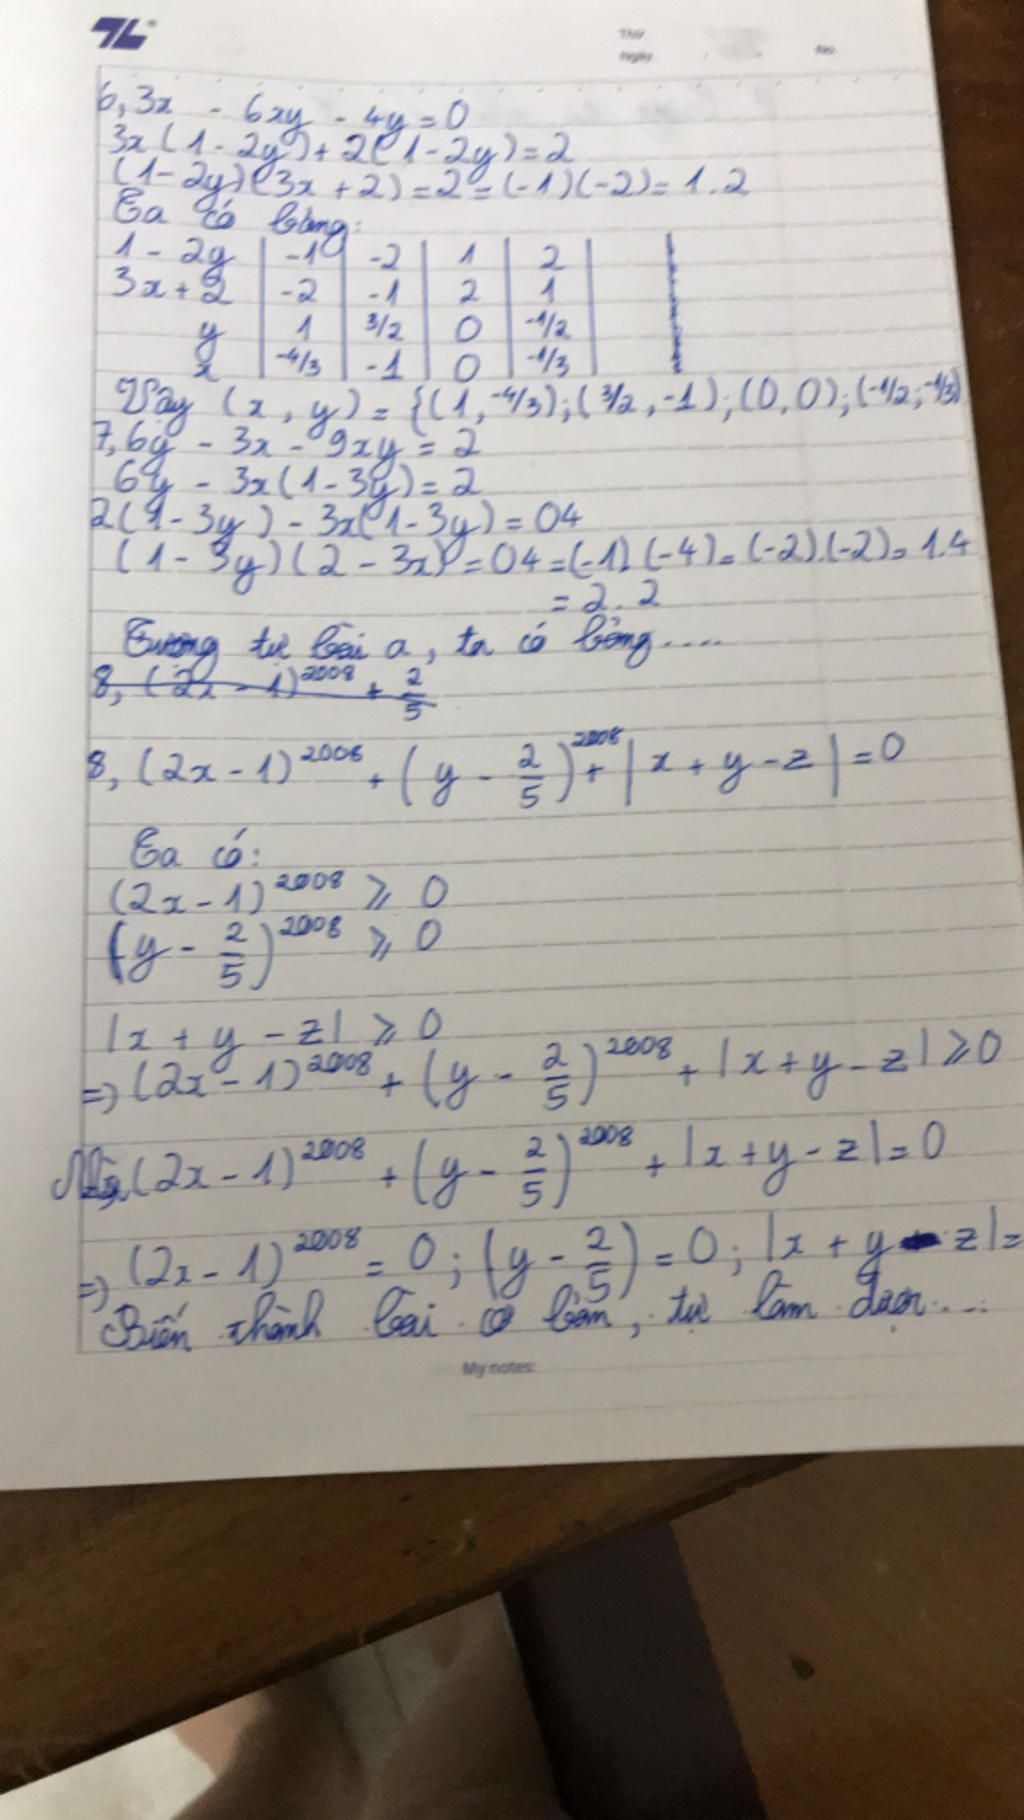 Thứ
Ngày
No.
6, 3x - 6xy - 4y = 0
3x(1 - 2y) + 2(1 - 2y) = 2
(1 - 2y)(3x + 2) = 2 = (-1)(-2) = 1.2
Ta có bảng:
1 - 2y | -1 | -2 | 1 | 2
3x + 2 | -2 | -1 | 2 | 1
y | 1 | 3/2 | 0 | -1/2
x | -4/3 | -1 | 0 | -1/3
Vậy (x, y) = {(1, -4/3); (3/2, -1); (0, 0); (-1/2; -1/3)
7, 6y - 3x - 9xy = 2
6y - 3x(1 - 3y) = 2
2(1 - 3y) - 3x(1 - 3y) = 04
(1 - 3y)(2 - 3x) = 04 = (-1)(-4) = (-2).(-2) = 1.4
= 2.2
Tương tự bài a, ta có bảng....
8, (2x - 1)^2008 + 2/5
8, (2x - 1)^2008 + (y - 2/5)^2008 + |x + y - z| = 0
Ta có:
(2x - 1)^2008 ⩾ 0
(y - 2/5)^2008 ⩾ 0
|x + y - z| ⩾ 0
=> (2x - 1)^2008 + (y - 2/5)^2008 + |x + y - z| ⩾ 0
Mà, (2x - 1)^2008 + (y - 2/5)^2008 + |x + y - z| = 0
=> (2x - 1)^2008 = 0; (y - 2/5) = 0; |x + y - z| =
Biến thành bài cơ bản, tự làm được...
My notes: